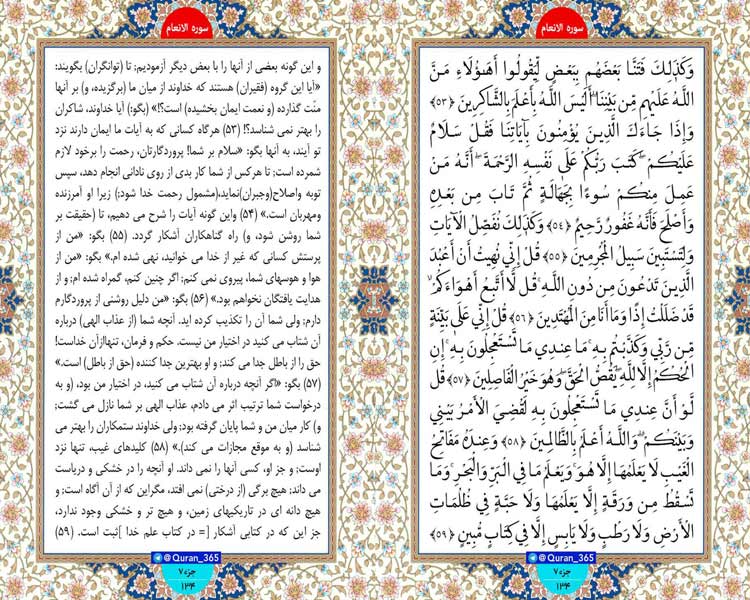 سوره الانعام
وَكَذَٰلِكَ فَتَنَّا بَعْضَهُم بِبَعْضٍ لِّيَقُولُوا أَهَٰؤُلَاءِ مَنَّ
اللَّهُ عَلَيْهِم مِّن بَيْنِنَا ۗ أَلَيْسَ اللَّهُ بِأَعْلَمَ بِالشَّاكِرِينَ ﴿۵۳﴾
وَإِذَا جَاءَكَ الَّذِينَ يُؤْمِنُونَ بِآيَاتِنَا فَقُلْ سَلَامٌ
عَلَيْكُمْ ۖ كَتَبَ رَبُّكُمْ عَلَىٰ نَفْسِهِ الرَّحْمَةَ ۖ أَنَّهُ مَنْ
عَمِلَ مِنكُمْ سُوءًا بِجَهَالَةٍ ثُمَّ تَابَ مِن بَعْدِهِ
وَأَصْلَحَ فَأَنَّهُ غَفُورٌ رَّحِيمٌ ﴿۵۴﴾ وَكَذَٰلِكَ نُفَصِّلُ الْآيَاتِ
وَلِتَسْتَبِينَ سَبِيلُ الْمُجْرِمِينَ ﴿۵۵﴾ قُلْ إِنِّي نُهِيتُ أَنْ أَعْبُدَ
الَّذِينَ تَدْعُونَ مِن دُونِ اللَّهِ ۚ قُل لَّا أَتَّبِعُ أَهْوَاءَكُمْ ۙ
قَدْ ضَلَلْتُ إِذًا وَمَا أَنَا مِنَ الْمُهْتَدِينَ ﴿۵۶﴾ قُلْ إِنِّي عَلَىٰ بَيِّنَةٍ
مِّن رَّبِّي وَكَذَّبْتُم بِهِ ۚ مَا عِندِي مَا تَسْتَعْجِلُونَ بِهِ ۚ إِنِ
الْحُكْمُ إِلَّا لِلَّهِ ۖ يَقُصُّ الْحَقَّ ۖ وَهُوَ خَيْرُ الْفَاصِلِينَ ﴿۵۷﴾ قُل
لَّوْ أَنَّ عِندِي مَا تَسْتَعْجِلُونَ بِهِ لَقُضِيَ الْأَمْرُ بَيْنِي
وَبَيْنَكُمْ ۗ وَاللَّهُ أَعْلَمُ بِالظَّالِمِينَ ﴿۵۸﴾ وَعِندَهُ مَفَاتِحُ
الْغَيْبِ لَا يَعْلَمُهَا إِلَّا هُوَ ۚ وَيَعْلَمُ مَا فِي الْبَرِّ وَالْبَحْرِ ۚ وَمَا
تَسْقُطُ مِن وَرَقَةٍ إِلَّا يَعْلَمُهَا وَلَا حَبَّةٍ فِي ظُلُمَاتِ
الْأَرْضِ وَلَا رَطْبٍ وَلَا يَابِسٍ إِلَّا فِي كِتَابٍ مُّبِينٍ ﴿۵۹﴾
@Quran_365
جزء۷
۱۳۴
سوره الانعام
و این گونه بعضی از آنها را با بعض دیگر آزمودیم; تا (توانگران) بگویند:
«آیا این گروه (فقیران) هستند که خداوند از میان ما (برگزیده، و) بر آنها
منّت گذارده (و نعمت ایمان بخشیده) است؟!» (بگو:) آیا خداوند، شاکران
را بهتر نمی شناسد؟! (۵۳) هرگاه کسانی که به آیات ما ایمان دارند نزد
تو آیند، به آنها بگو: «سلام بر شما! پروردگارتان، رحمت را برخود لازم
شمرده است; تا هرکس از شما کار بدی از روی نادانی انجام دهد، سپس
توبه واصلاح(وجبران)نماید،(مشمول رحمت خدا شود;) زیرا او آمرزنده
ومهربان است.» (۵۴) واین گونه آیات را شرح می دهیم، تا (حقیقت بر
شما روشن شود، و) راه گناهکاران آشکار گردد. (۵۵) بگو: «من از
پرستش کسانی که غیر از خدا می خوانید، نهی شده ام.» بگو: «من از
هوا و هوسهای شما، پیروی نمی کنم; اگر چنین کنم، گمراه شده ام; و از
هدایت یافتگان نخواهم بود.» (۵۶) بگو: «من دلیل روشنی از پروردگارم
دارم; ولی شما آن را تکذیب کرده اید. آنچه شما (از عذاب الهی) درباره
آن شتاب می کنید در اختیار من نیست. حکم و فرمان، تنهاازآن خداست!
حق را از باطل جدا می کند; و او بهترین جدا کننده (حق از باطل) است.»
(۵۷) بگو: «اگر آنچه درباره آن شتاب می کنید، در اختیار من بود، (و به
درخواست شما ترتیب اثر می دادم، عذاب الهی بر شما نازل می گشت;
و) کار میان من و شما پایان گرفته بود; ولی خداوند ستمکاران را بهتر می
شناسد (و به موقع مجازات می کند).» (۵۸) کلیدهای غیب، تنها نزد
اوست; و جز او، کسی آنها را نمی داند. او آنچه را در خشکی و دریاست
می داند; هیچ برگی (از درختی) نمی افتد، مگراین که از آن آگاه است; و
هیچ دانه ای در تاریکیهای زمین، و هیچ تر و خشکی وجود ندارد،
جز این که در کتابی آشکار [= در کتاب علم خدا ]ثبت است. (۵۹)
@Quran_365
جزء۷
۱۳۴